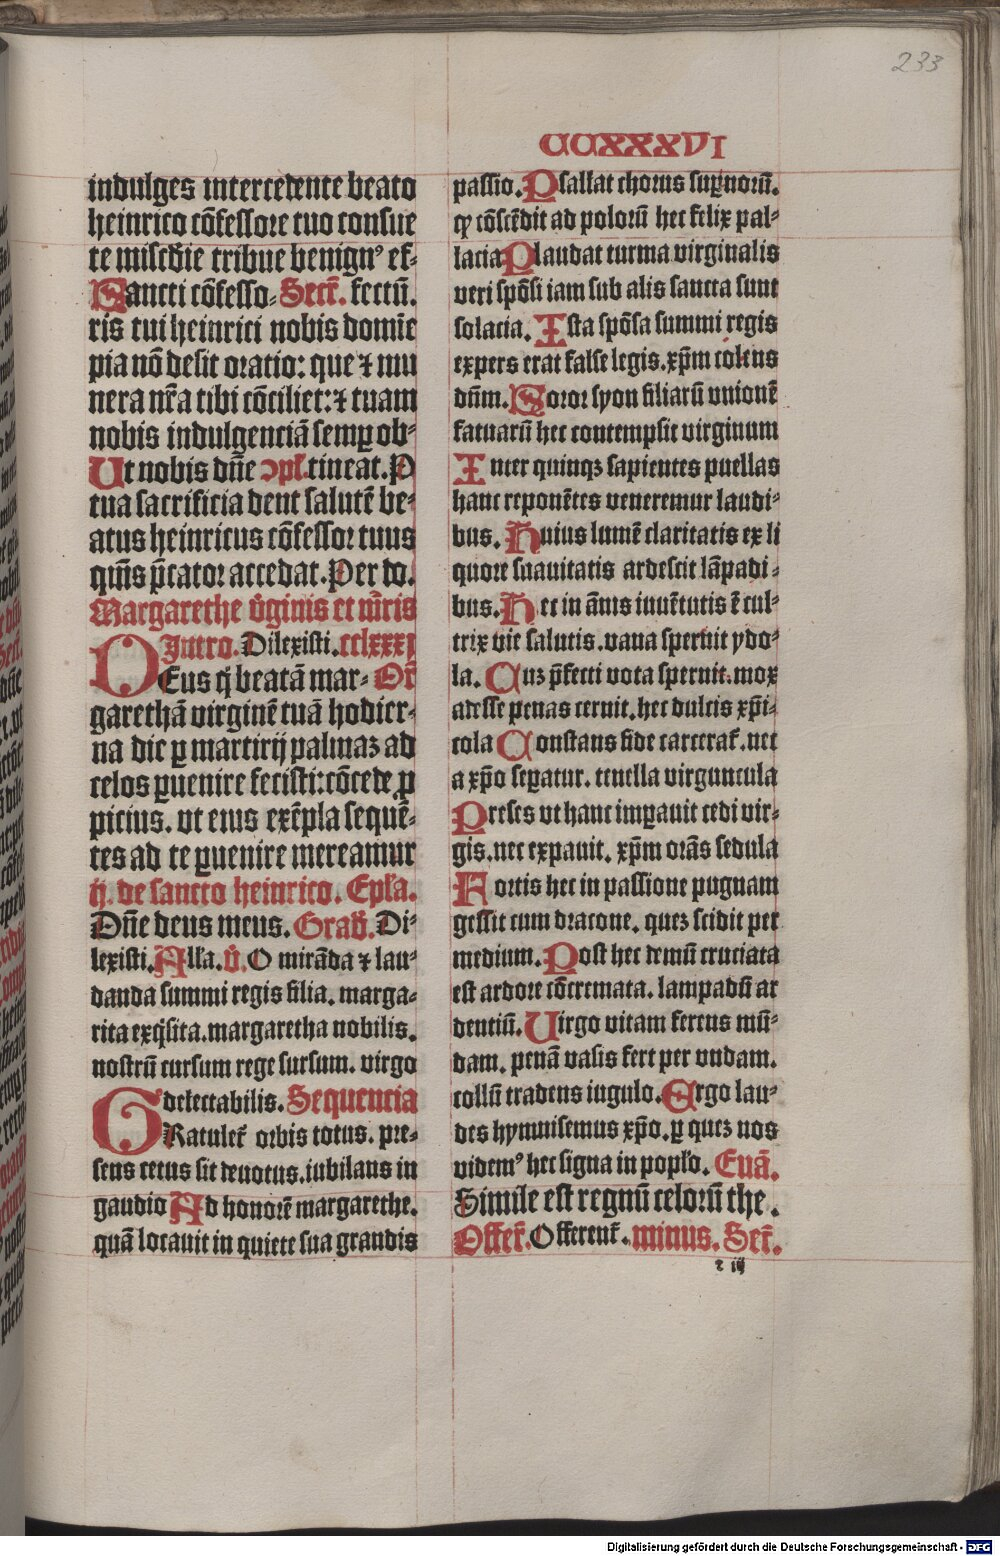 233
CCXXXVI
indulges intercedente beato
heinrico cõfessore tuo consue
te miscd̃ie tribue benignꝰ ef⸗
Sancti cõfesso⸗ Secr̃. fectũ.
ris tui heinrici nobis domĩe
pia nõ desit oratio: que ⁊ mu
nera nr̃a tibi cõciliet: ⁊ tuam
nobis indulgenciã semꝑ ob⸗
Ut nobis dñe ↄpl̃. tineat. P
tua sacrificia dent salutẽ be⸗
atus heinricus cõfessor tuus
qm̃s p̃cator accedat. Per do.
Margarethe v̓ginis et mr̃is
Intro. Dilexisti. cclxxxj
DEus q̃ beatã mar⸗ Or̃
garethã virginẽ tuã hodier⸗
na die ꝑ martirij palmaz ad
celos ꝑuenire fecisti: cõcede ꝓ
picius. vt eius exẽpla sequẽ⸗
tes ad te ꝑuenire mereamur
ij. de sancto heinrico. Epl̃a.
Dñe deus meus. Grad̃. Di⸗
lexisti. All̃a. v̓. O mirãda ⁊ lau⸗
danda summi regis filia. marga⸗
rita exq̃sita. margaretha nobilis.
nostrũ cursum rege sursum. virgo
delectabilis. Sequencia
GRatulet̃ orbis totus. pre⸗
sens cetus sit deuotus. iubilans in
gaudio Ad honorẽ margarethe.
quã locauit in quiete sua grandis
passio. Psallat chorus suꝑnorũ.
qꝫ cõscẽdit ad polorũ hec felix pal⸗
lacia Plaudat turma virginalis
veri spõsi iam sub alis sancta sunt
solacia. Ista spõsa summi regis
expers erat false legis. xp̃m colens
dñm. Soror syon filiarũ vnionẽ
fatuarũ hec contempsit virginum
Inter quinqꝫ sapientes puellas
hanc reponẽtes veneremur laudi⸗
bus. Huius lumẽ claritatis ex li
quore suauitatis ardescit lãpadi⸗
bus. Hec in ãnis iuuẽtutis ẽ cul⸗
trix vie salutis. vana spernit ydo⸗
la. Cuz p̃fecti vota spernit. mox
adesse penas cernit. hec dulcis xp̃i⸗
cola Constans fide carcerat̃. nec
a xp̃o seꝑatur. tenella virguncula
Preses vt hanc imꝑauit cedi vir⸗
gis. nec expauit. xp̃m orãs sedula
Fortis hec in passione pugnam
gessit cum dracone. quez scidit per
medium. Post hec demũ cruciata
est ardore cõcremata. lampadũ ar
dentiũ. Uirgo vitam ferens mũ⸗
dam. penã vasis fert per vndam.
collũ tradens iugulo. Ergo lau⸗
des hymnisemus xp̃o. ꝑ quez nos
videmꝰ hec signa in popl̃o. Euã.
Simile est regnũ celorũ the.
Offer̃. Offerent̃. minus. Secr̃.
t iij
Digitalisierung gefördert durch die Deutsche Forschungsgemeinschaft - DFG